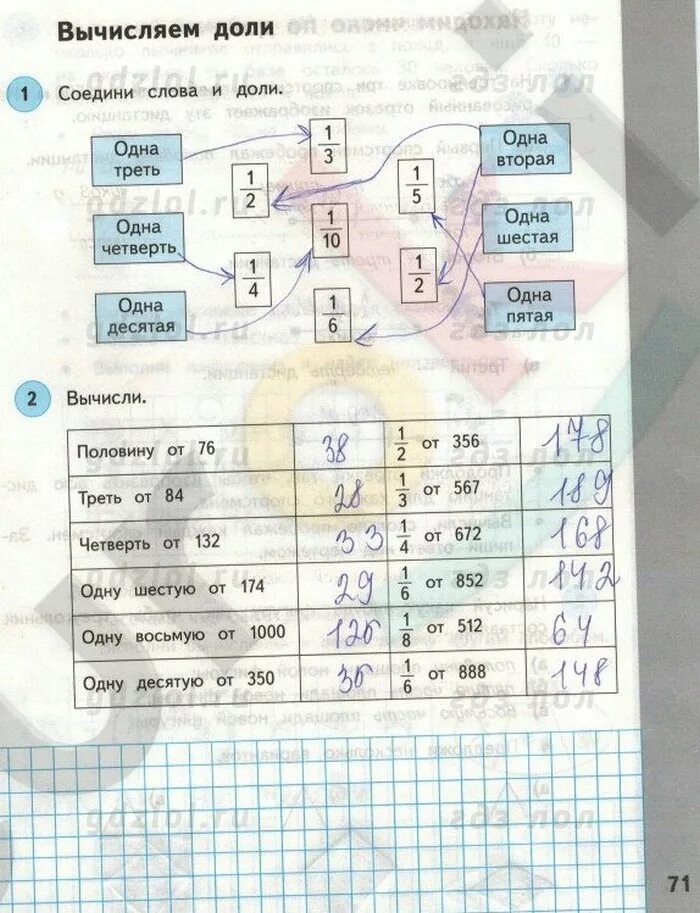 Вычисляем доли
1 Соедини слова и доли.
Одна треть
1/3
Одна вторая
1/2
1/5
Одна четверть
1/10
Одна шестая
1/4
1/2
Одна десятая
1/6
Одна пятая
2 Вычисли.
Половину от 76 38 1/2 от 356 178
Треть от 84 28 1/3 от 567 189
Четверть от 132 33 1/4 от 672 168
Одну шестую от 174 29 1/6 от 852 142
Одну восьмую от 1000 125 1/8 от 512 64
Одну десятую от 350 35 1/6 от 888 148
gdzlol.ru гдз лол
71